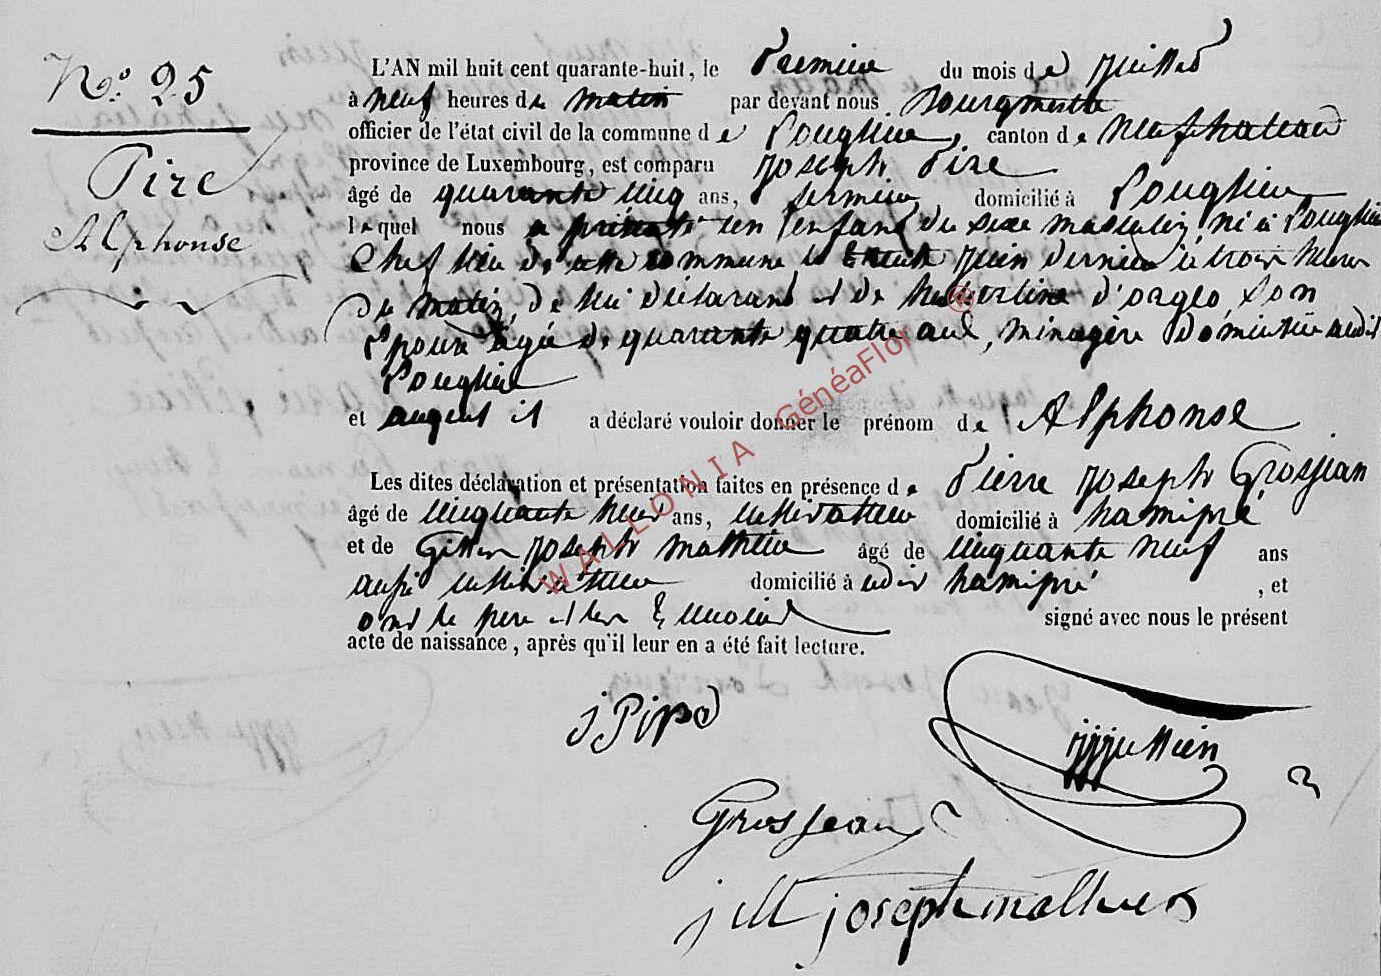 N.º 25
Pire
Alphonse
L'AN mil huit cent quarante-huit, le Premier du mois de juillet
à neuf heures du matin par devant nous Bourgmestre
officier de l'état civil de la commune de Longlier, canton de neufchateau
province de Luxembourg, est comparu Joseph Pire
âgé de quarante cinq ans, fermier domicilié à Longlier
lequel nous a présenté un enfant du sexe masculin, né à Longlier
chef lieu de cette commune le trente juin dernier à trois heures
du matin, de lui déclarant et de d'orgeo, son
Epouse agée de quarante quatre ans, ménagère domiciliée audit
Longlier
et auquel il a déclaré vouloir donner le prénom de Alphonse
Les dites déclaration et présentation faites en présence de Pierre Joseph Grosjean
âgé de cinquante neuf ans, cultivateur domicilié à hamipré
et de Joseph mathieu âgé de cinquante neuf ans
aussi cultivateur domicilié à udit hamipré , et
ont le père et les témoins signé avec nous le présent
acte de naissance, après qu'il leur en a été fait lecture.
j Pire
Grosjean
joseph mathieu
WALLONIA GénéaFlor ®